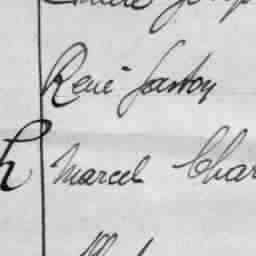 René Gaston
h Marcel Char